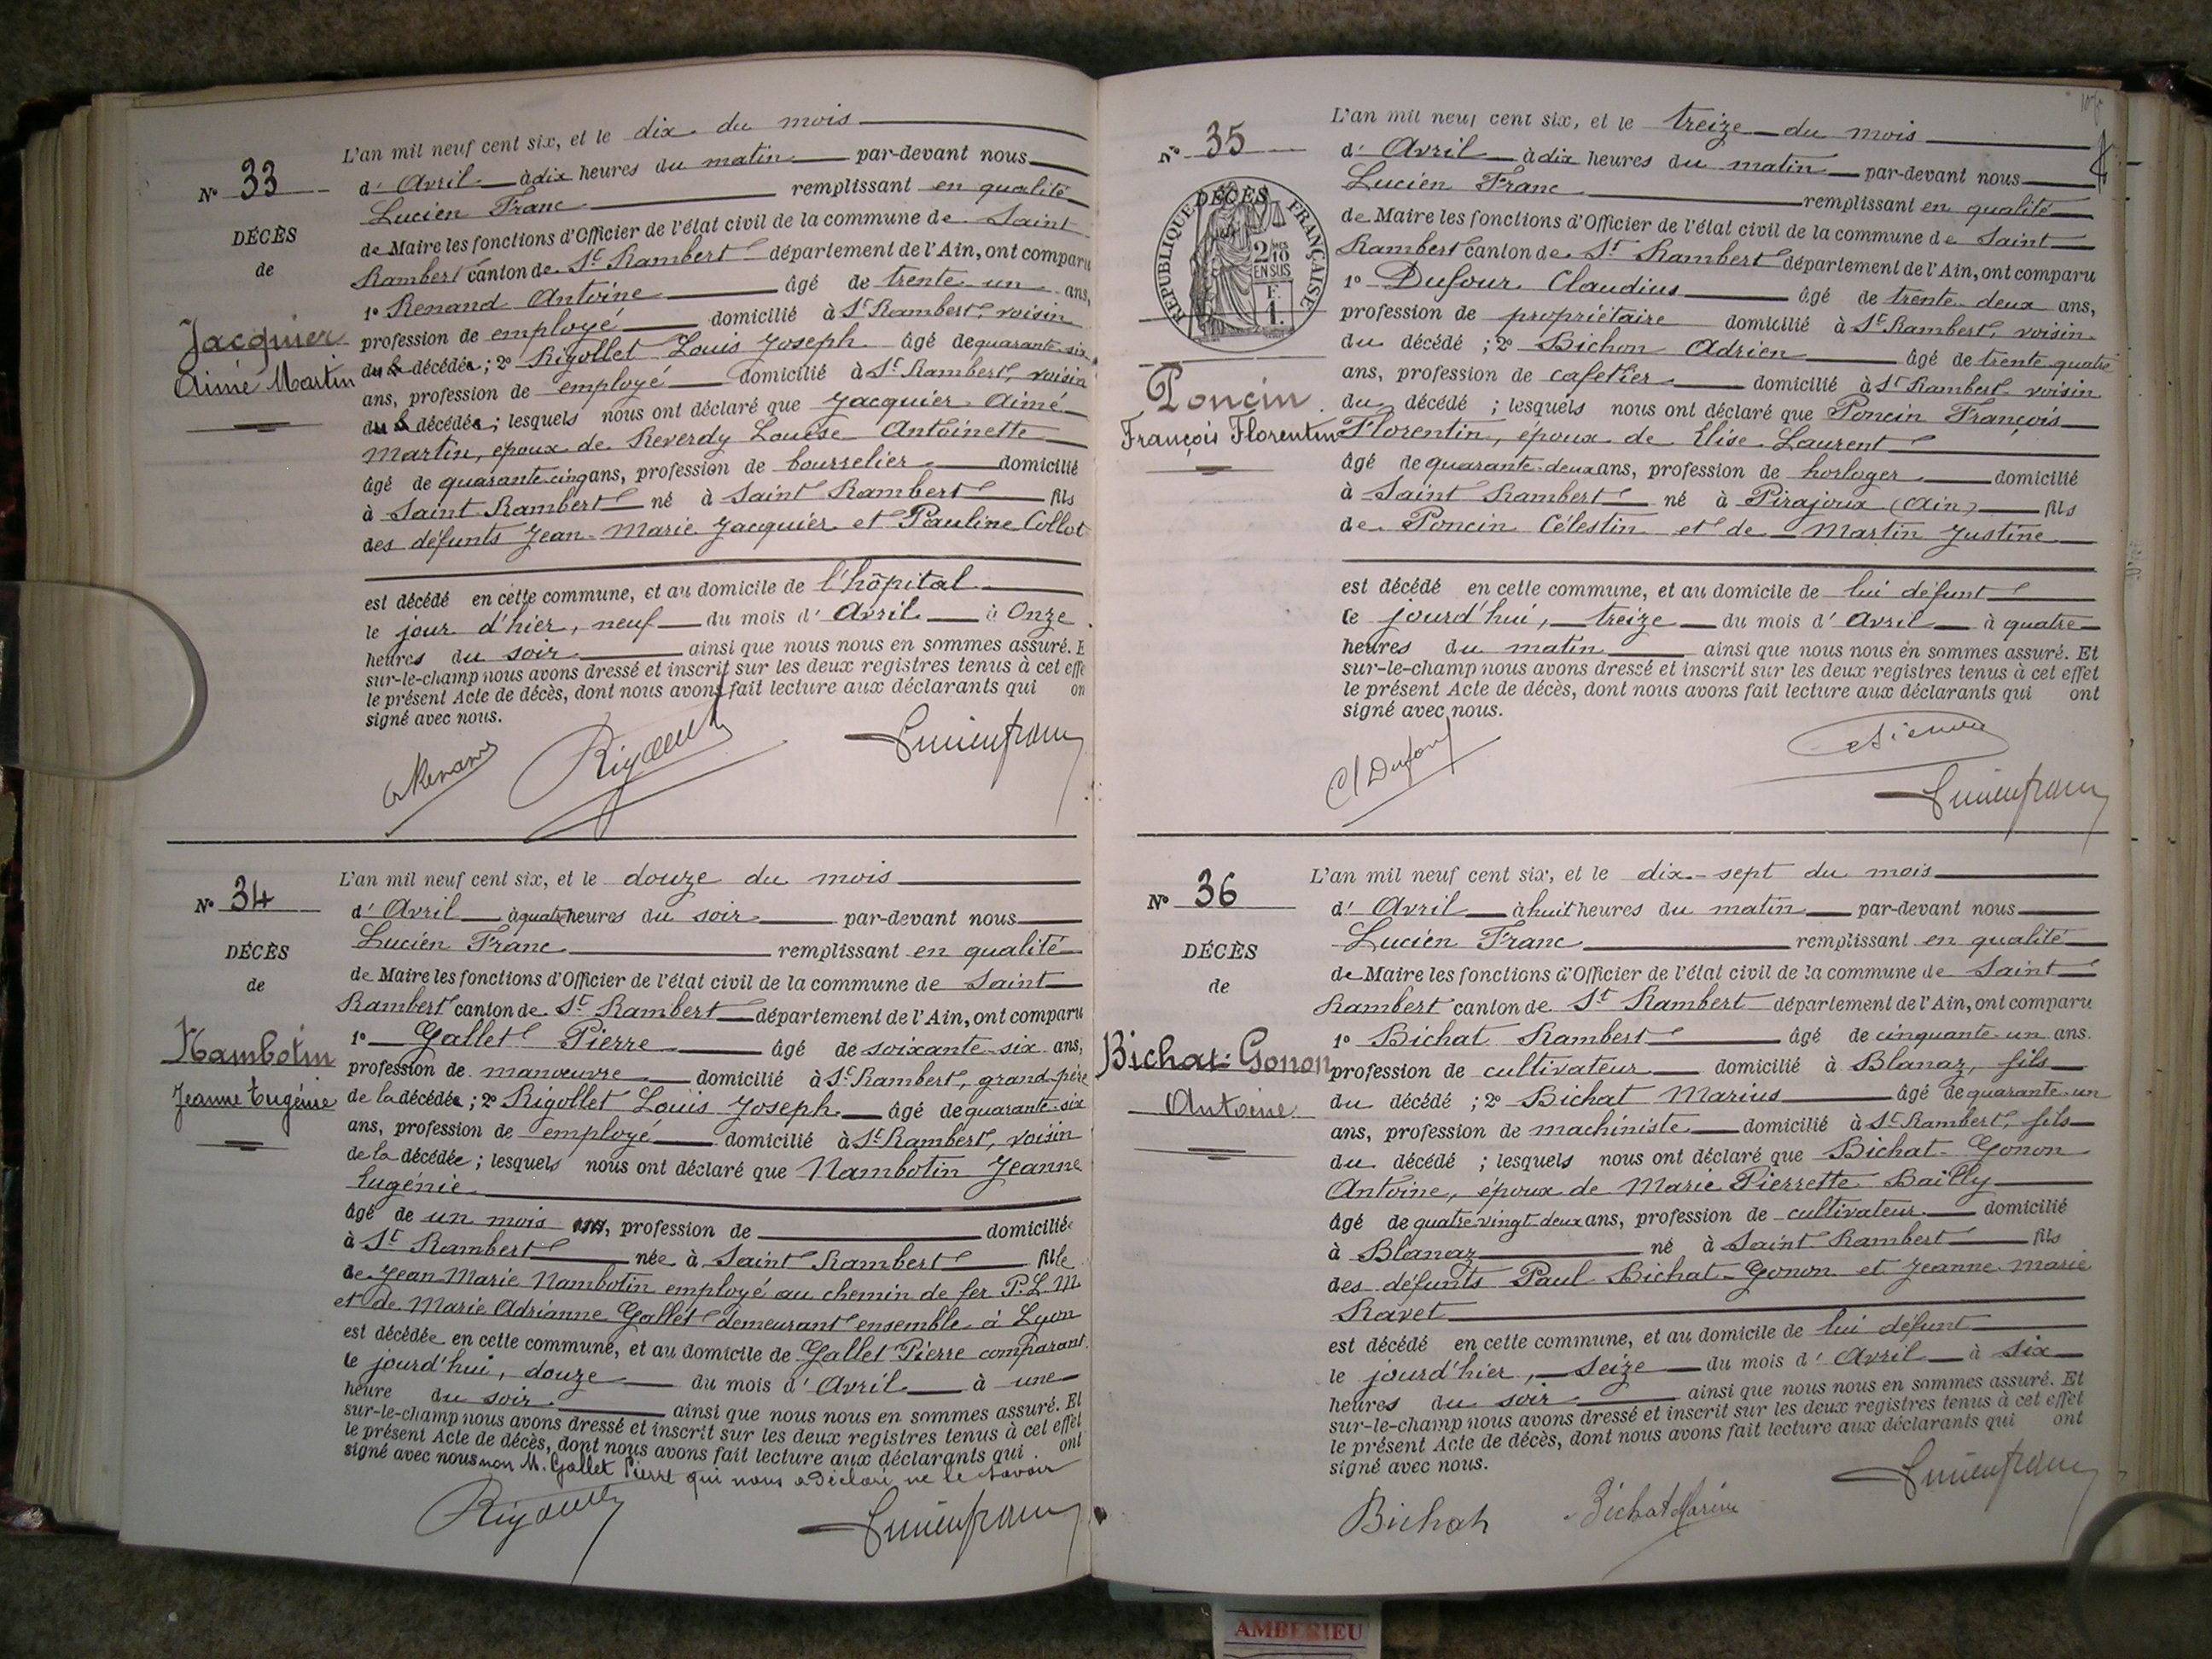 N° 33
DÉCÈS
de
Jacquier
Aimé Martin
L'an mil neuf cent six, et le dix du mois
d'Avril à dix heures du matin par-devant nous
Lucien Franc remplissant en qualité
de Maire les fonctions d'Officier de l'état civil de la commune de Saint
Rambert canton de St Rambert département de l'Ain, ont comparu
1° Renand Antoine âgé de trente un ans,
profession de employé domicilié à St Rambert, voisin
du décédé ; 2° Rigollet Louis Joseph âgé de quarante-six
ans, profession de employé domicilié à St Rambert, voisin
du décédé ; lesquels nous ont déclaré que Jacquier Aimé
Martin, époux de Reverdy Louise Antoinette
âgé de quarante-cinq ans, profession de bourrelier domicilié
à Saint Rambert né à Saint Rambert fils
des défunts Jean-Marie Jacquier et Pauline Collot
est décédé en cette commune, et au domicile de l'hôpital
le jour d'hier, neuf du mois d'Avril à Onze
heures du soir ainsi que nous nous en sommes assuré. E
sur-le-champ nous avons dressé et inscrit sur les deux registres tenus à cet effe
le présent Acte de décès, dont nous avons fait lecture aux déclarants qui on
signé avec nous.
Renand Rigollet Lucien Franc
N° 34
DÉCÈS
de
Nambotin
Jeanne Eugénie
L'an mil neuf cent six, et le douze du mois
d'Avril à quatre heures du soir par-devant nous
Lucien Franc remplissant en qualité
de Maire les fonctions d'Officier de l'état civil de la commune de Saint
Rambert canton de St Rambert département de l'Ain, ont comparu
1° Gallet Pierre âgé de soixante-six ans,
profession de manœuvre domicilié à St Rambert, grand-père
de la décédée ; 2° Rigollet Louis Joseph âgé de quarante-six
ans, profession de employé domicilié à St Rambert, voisin
de la décédée ; lesquels nous ont déclaré que Nambotin Jeanne
Eugenie
âgé de un mois ans, profession de domicilié
à St Rambert née à Saint Rambert fille
de Jean-Marie Nambotin employé au chemin de fer P.L.M
et de Marie Adrianne Gallet demeurant ensemble à Lyon
est décédée en cette commune, et au domicile de Gallet Pierre comparant
le jourd'hui, douze du mois d'Avril à une
heure du soir ainsi que nous nous en sommes assuré. Et
sur-le-champ nous avons dressé et inscrit sur les deux registres tenus à cet effet
le présent Acte de décès, dont nous avons fait lecture aux déclarants qui ont
signé avec nous non M. Gallet Pierre qui nous a déclaré ne le savoir
Rigollet Lucien Franc
N° 35
RÉPUBLIQUE FRANÇAISE
DÉCÈS
2/10 EN SUS
F. 1.
Poncin
François Florentin
L'an mil neuf cent six, et le treize du mois
d'Avril à dix heures du matin par-devant nous
Lucien Franc remplissant en qualité
de Maire les fonctions d'Officier de l'état civil de la commune de Saint
Rambert canton de St Rambert département de l'Ain, ont comparu
1° Dufour Claudius âgé de trente-deux ans,
profession de propriétaire domicilié à St Rambert, voisin
du décédé ; 2° Bichon Adrien âgé de trente quatre
ans, profession de cafetier domicilié à St Rambert voisin
du décédé ; lesquels nous ont déclaré que Poncin François
Florentin, époux de Elise Laurent
âgé de quarante-deux ans, profession de horloger domicilié
à Saint Rambert né à Pirajoux (Ain) fils
de Poncin Célestin et de Martin Justine
est décédé en cette commune, et au domicile de lui défunt
le jourd'hui, treize du mois d'Avril à quatre
heures du matin ainsi que nous nous en sommes assuré. Et
sur-le-champ nous avons dressé et inscrit sur les deux registres tenus à cet effet
le présent Acte de décès, dont nous avons fait lecture aux déclarants qui ont
signé avec nous.
Cl Dufour
Lucien Franc
N° 36
DÉCÈS
de
Bichat-Gonon
Antoine
L'an mil neuf cent six, et le dix-sept du mois
d'Avril à huit heures du matin par-devant nous
Lucien Franc remplissant en qualité
de Maire les fonctions d'Officier de l'état civil de la commune de Saint
Rambert canton de St Rambert département de l'Ain, ont comparu
1° Bichat Rambert âgé de cinquante-un ans.
profession de cultivateur domicilié à Blanaz, fils
du décédé ; 2° Bichat Marius âgé de quarante-un
ans, profession de machiniste domicilié à St Rambert, fils
du décédé ; lesquels nous ont déclaré que Bichat-Gonon
Antoine, époux de Marie Pierrette Bailly
âgé de quatre-vingt-deux ans, profession de cultivateur domicilié
à Blanaz né à Saint Rambert fils
des défunts Paul Bichat-Gonon et Jeanne-Marie
Ravet
est décédé en cette commune, et au domicile de lui défunt
le jourd'hier, seize du mois d'Avril à six
heures du soir ainsi que nous nous en sommes assuré. Et
sur-le-champ nous avons dressé et inscrit sur les deux registres tenus à cet effet
le présent Acte de décès, dont nous avons fait lecture aux déclarants qui ont
signé avec nous.
Bichat Bichat Marius Lucien Franc
AMBERIEU